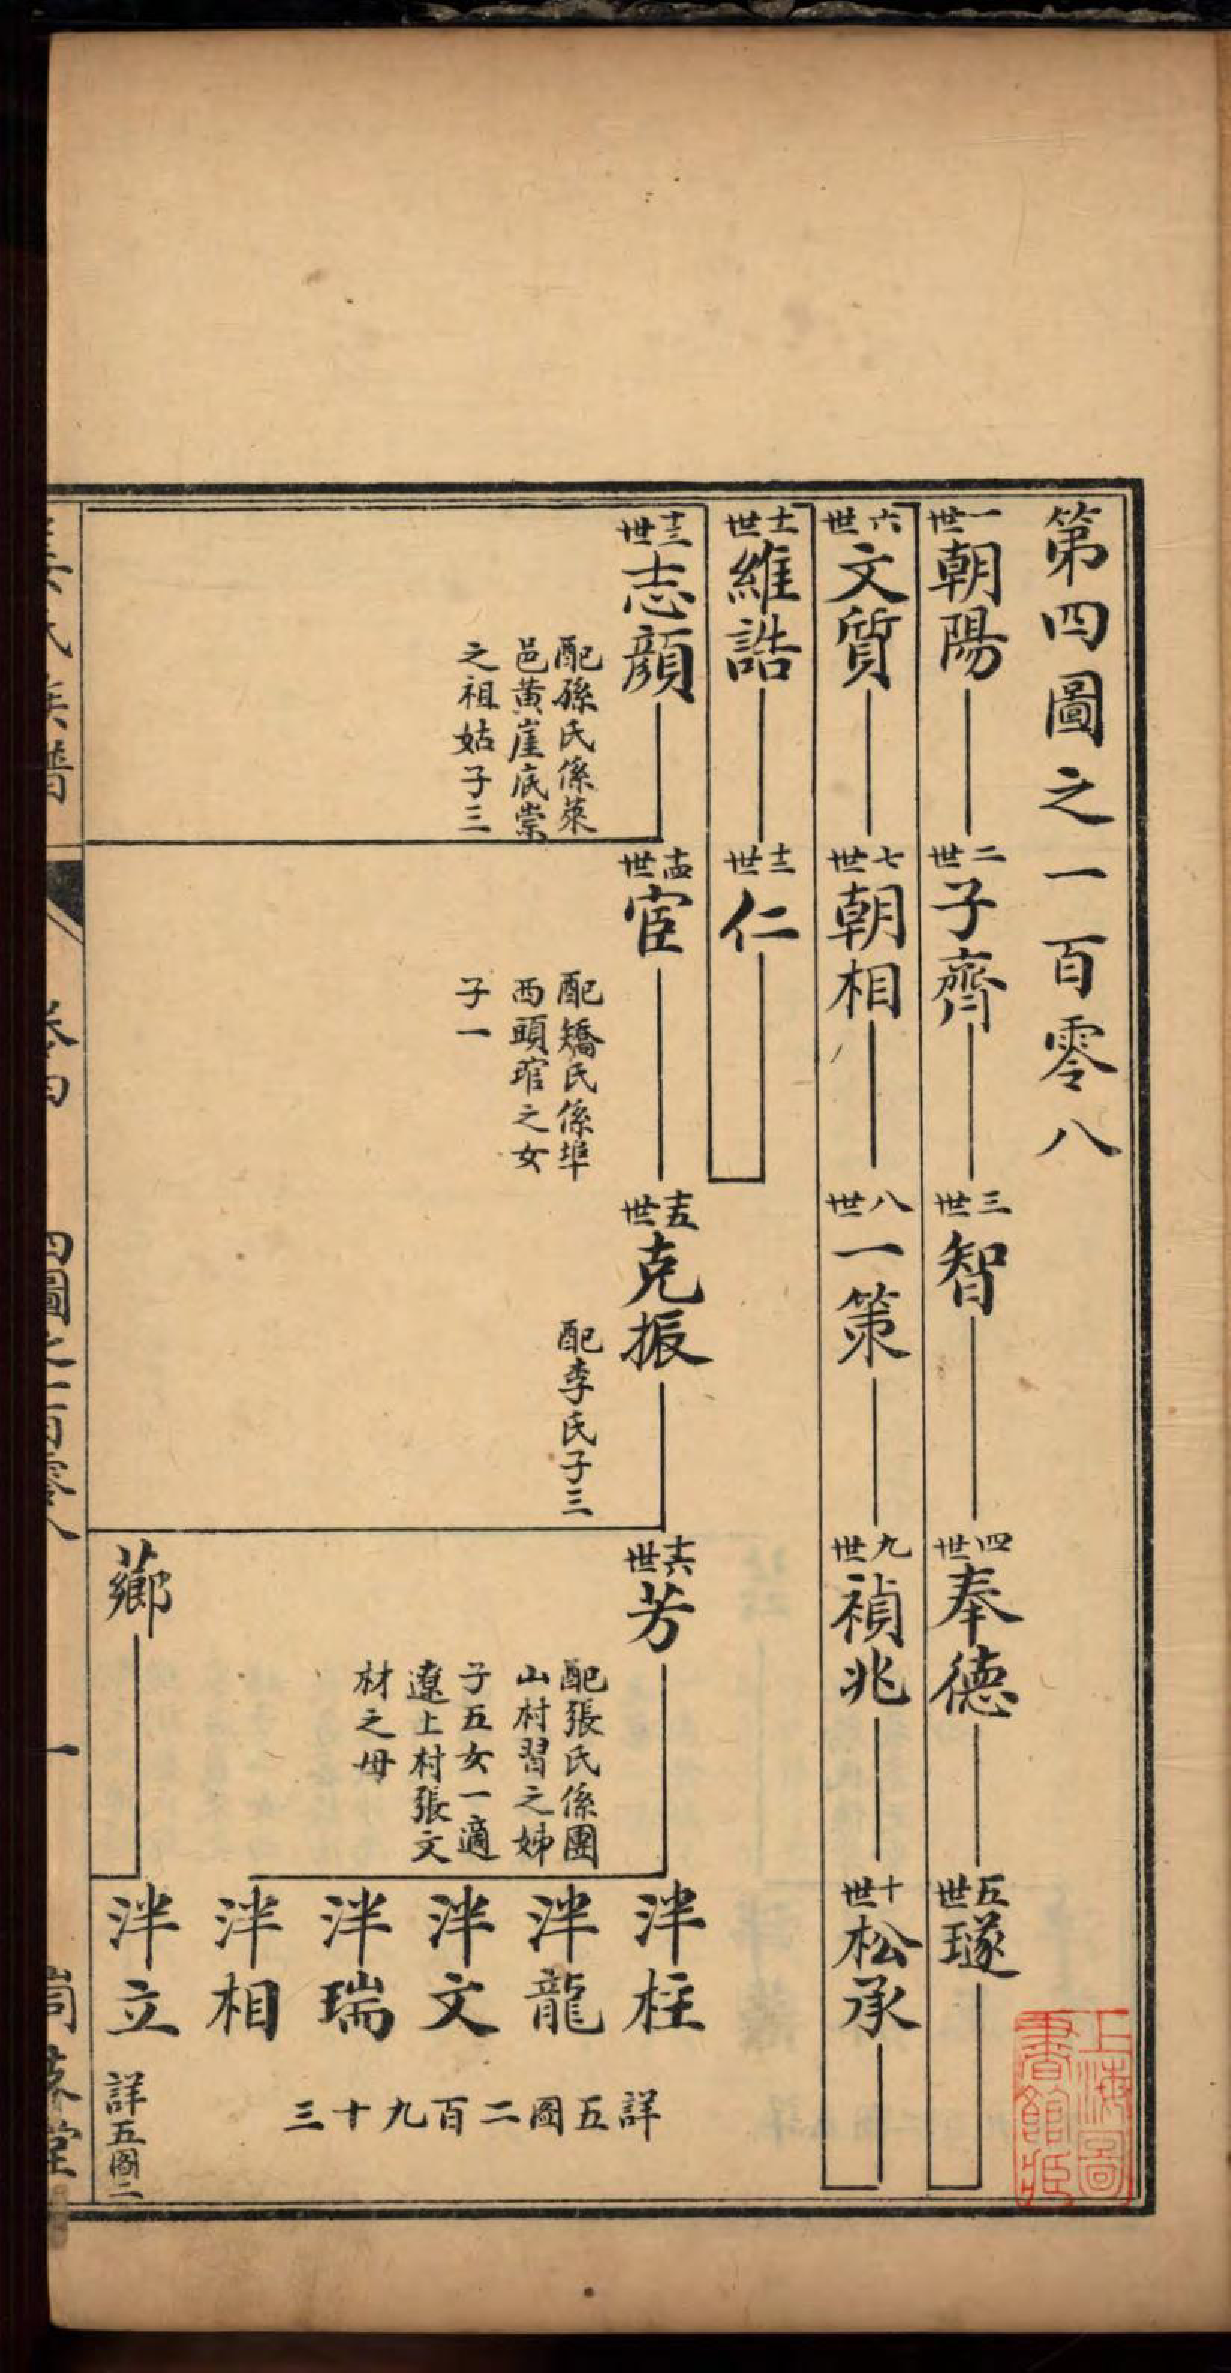 第四圖之一百零八
一世 朝陽 二世 子齊 三世 智 四世 奉德 五世 璲
六世 文質 七世 朝相 八世 一策 九世 禎兆 十世 松承
十一世 維誥 十二世 仁
十三世 志顏
配孫氏係萊
邑黃崖底崇
之祖姑子三
十四世 宦
配矯氏係埠
西頭琯之女
子一
十五世 克振
配李氏子三
十六世 芳
配張氏係團
山村習之姊
子五女一適
遼上村張文
材之母
泮柱
泮龍
泮文
泮瑞
泮相
詳五圖二百九十三
薌
泮立
詳五圖二
氏族譜
卷四
四圖之一百零八
一
上海圖書館藏